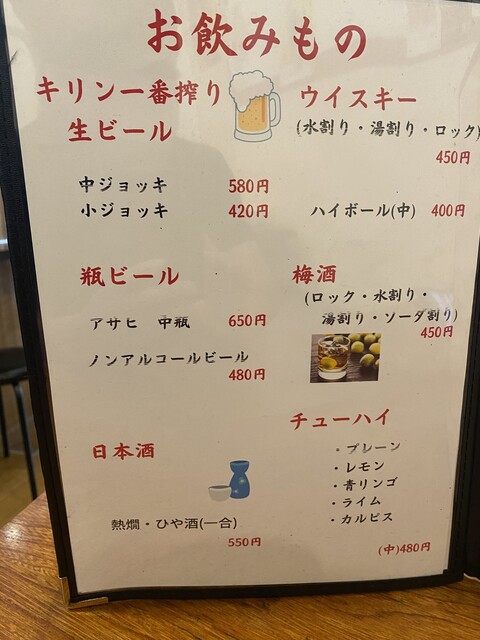 お飲みもの
キリン一番搾り
生ビール
中ジョッキ 580円
小ジョッキ 420円
瓶ビール
アサヒ 中瓶 650円
ノンアルコールビール
480円
日本酒
熱燗・ひや酒(一合)
550円
ウイスキー
(水割り・湯割り・ロック)
450円
ハイボール(中) 400円
梅酒
(ロック・水割り・
湯割り・ソーダ割り)
450円
チューハイ
・プレーン
・レモン
・青リンゴ
・ライム
・カルピス
(中)480円